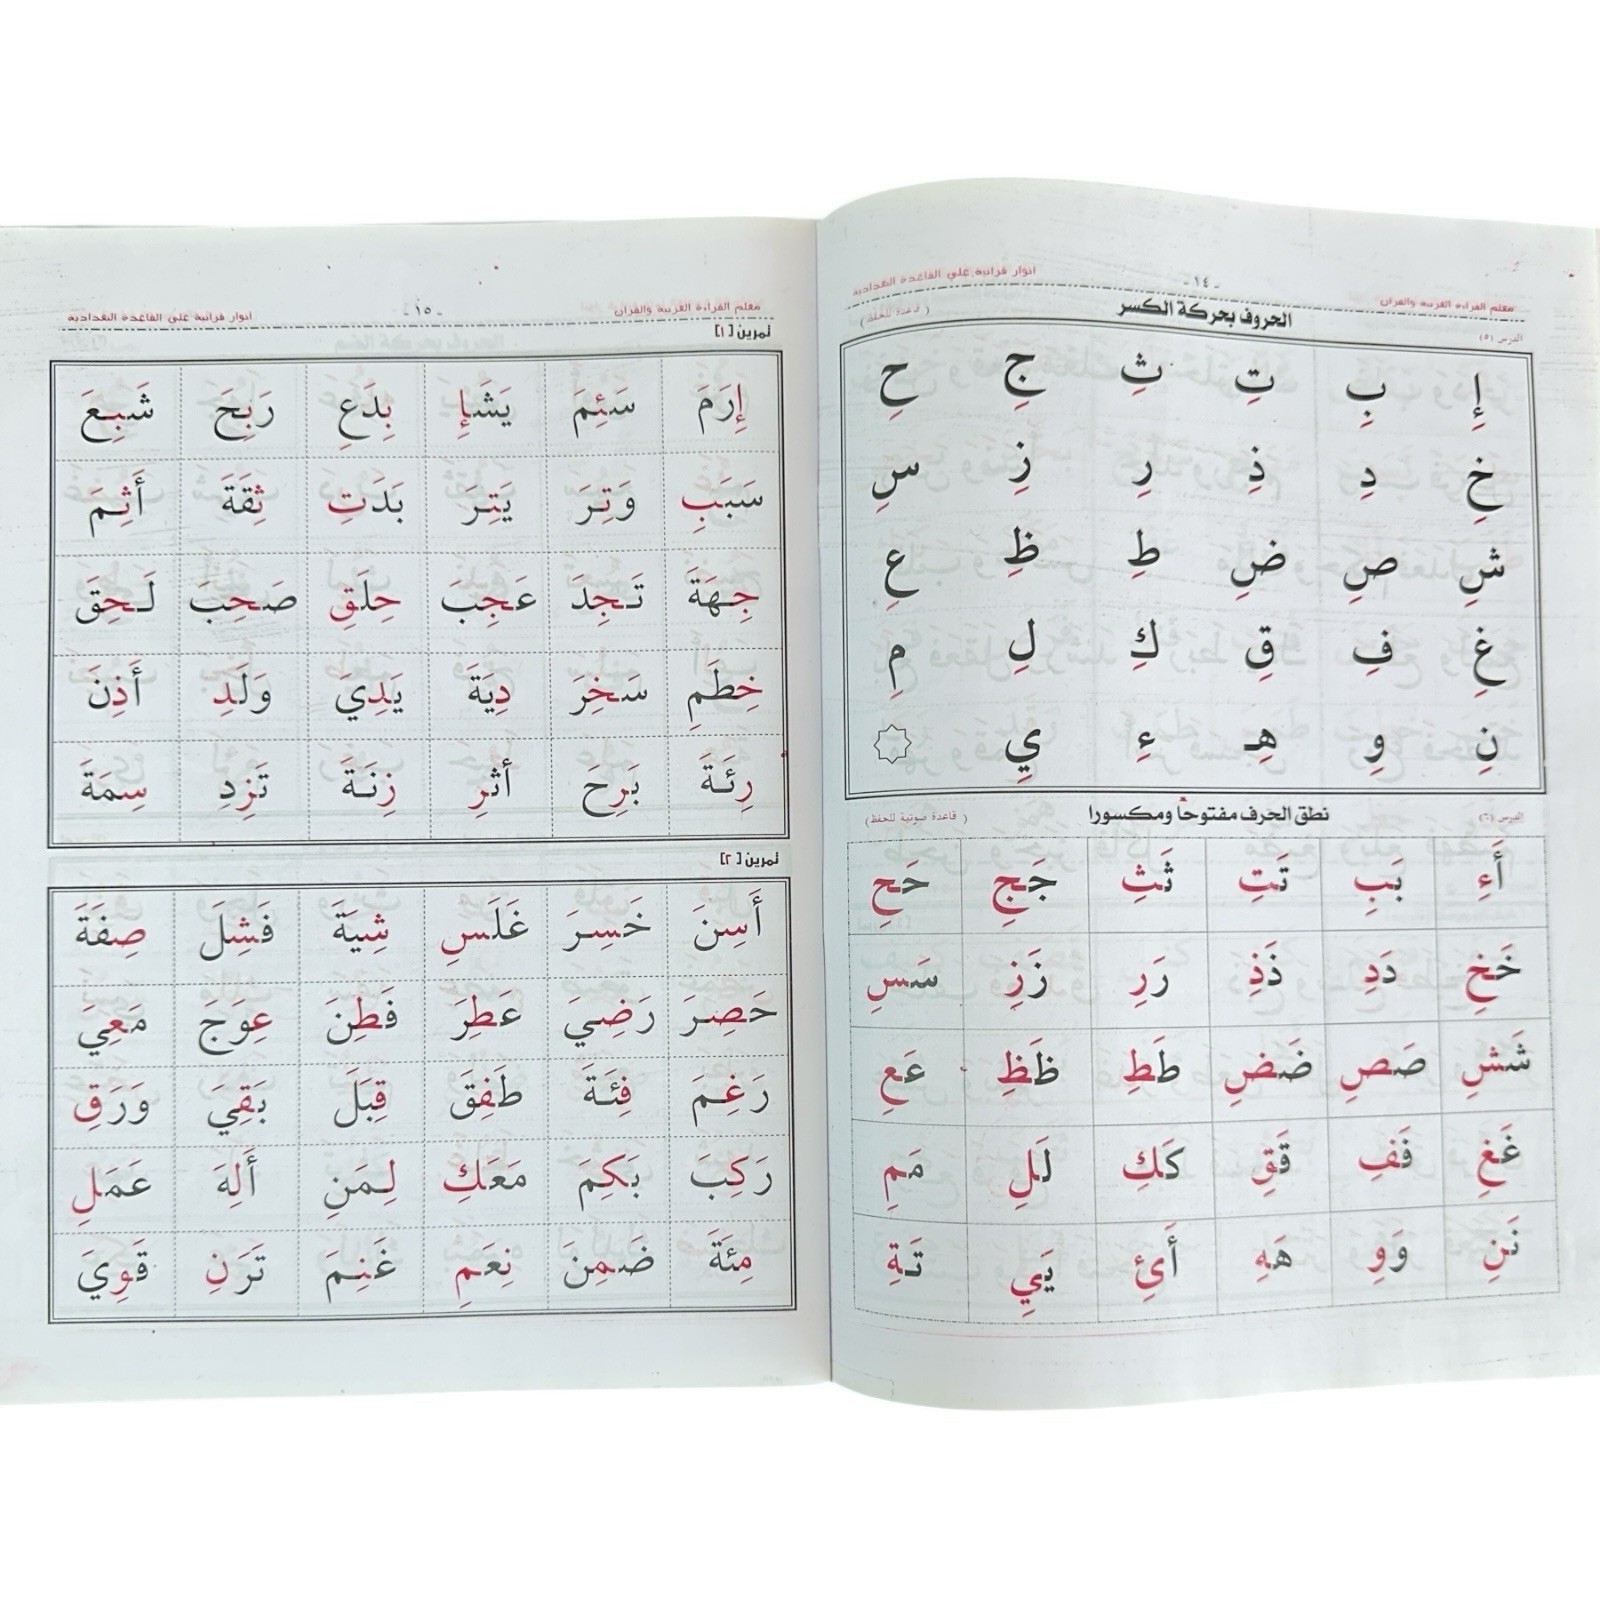 معلم القراءة العربية والقرآن - ١٤ - أنوار قرآنية على القاعدة البغدادية
الدرس (٥) الحروف بحركة الكسر ( قاعدة للحفظ )
إِ بِ تِ ثِ جِ حِ
خِ دِ ذِ رِ زِ سِ
شِ صِ ضِ طِ ظِ عِ
غِ فِ قِ كِ لِ مِ
نِ وِ هِـ ءِ يِ
الدرس (٦) نطق الحرف مفتوحاً ومكسورا ( قاعدة صوتية للحفظ )
أَءِ بَبِ تَتِ ثَثِ جَجِ حَحِ
خَخِ دَدِ ذَذِ رَرِ زَزِ سَسِ
شَشِ صَصِ ضَضِ طَطِ ظَظِ عَعِ
غَغِ فَفِ قَقِ كَكِ لَلِ مَمِ
نَنِ وَوِ هَهِ أَئِ يَيِ تَةِ
معلم القراءة العربية والقرآن - ١٥ - أنوار قرآنية على القاعدة البغدادية
تمرين [١]
إِرَمَ سَئِمَ يَشَإِ بِدَعِ رَبِحَ شَبِعَ
سَبَبِ وَتِرَ يَتِرَ بَدَتِ ثِقَةَ أَثِمَ
جِهَةَ تَجِدَ عَجِبَ حِلَقِ صَحِبَ لَحِقَ
خِطَمِ سَخِرَ دِيَةَ يَدِيَ وَلَدِ أَذِنَ
رِئَةَ بَرِحَ أثرِ زِنَةَ تَزِدِ سِمَةَ
تمرين [٢]
أَسِنَ خَسِرَ غَلَسِ شِيَةَ فَشِلَ صِفَةَ
حَصِرَ رَضِيَ عَطِرَ فَطِنَ عِوَجَ مَعِيَ
رَغِمَ فِئَةَ طَفِقَ قِبَلَ بَقِيَ وَرَقِ
رَكِبَ بَكِمَ مَعَكِ لِمَنِ أَلِهَ عَمَلِ
مِئَةَ ضَمِنَ نِعَمِ غَنِمَ تَرَنِ قَوِيَ